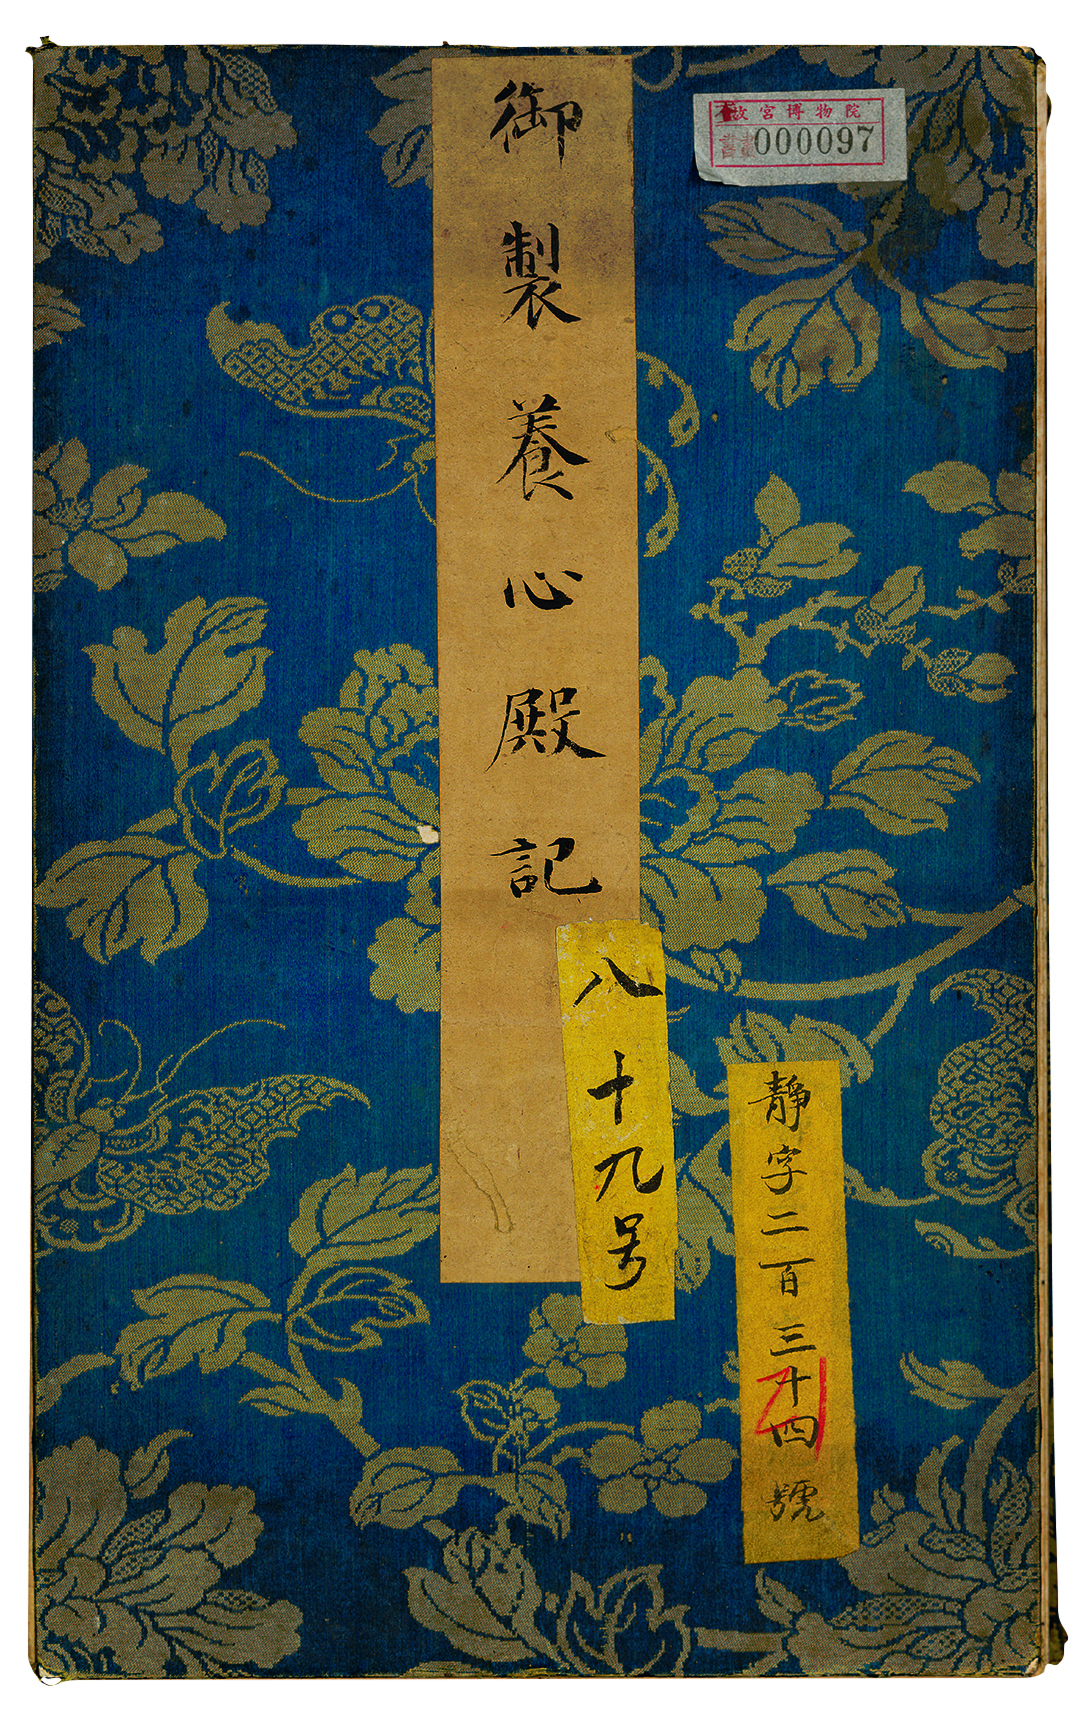 御製養心殿記
故宮博物院
000097
八十九号
靜字二百三十四號